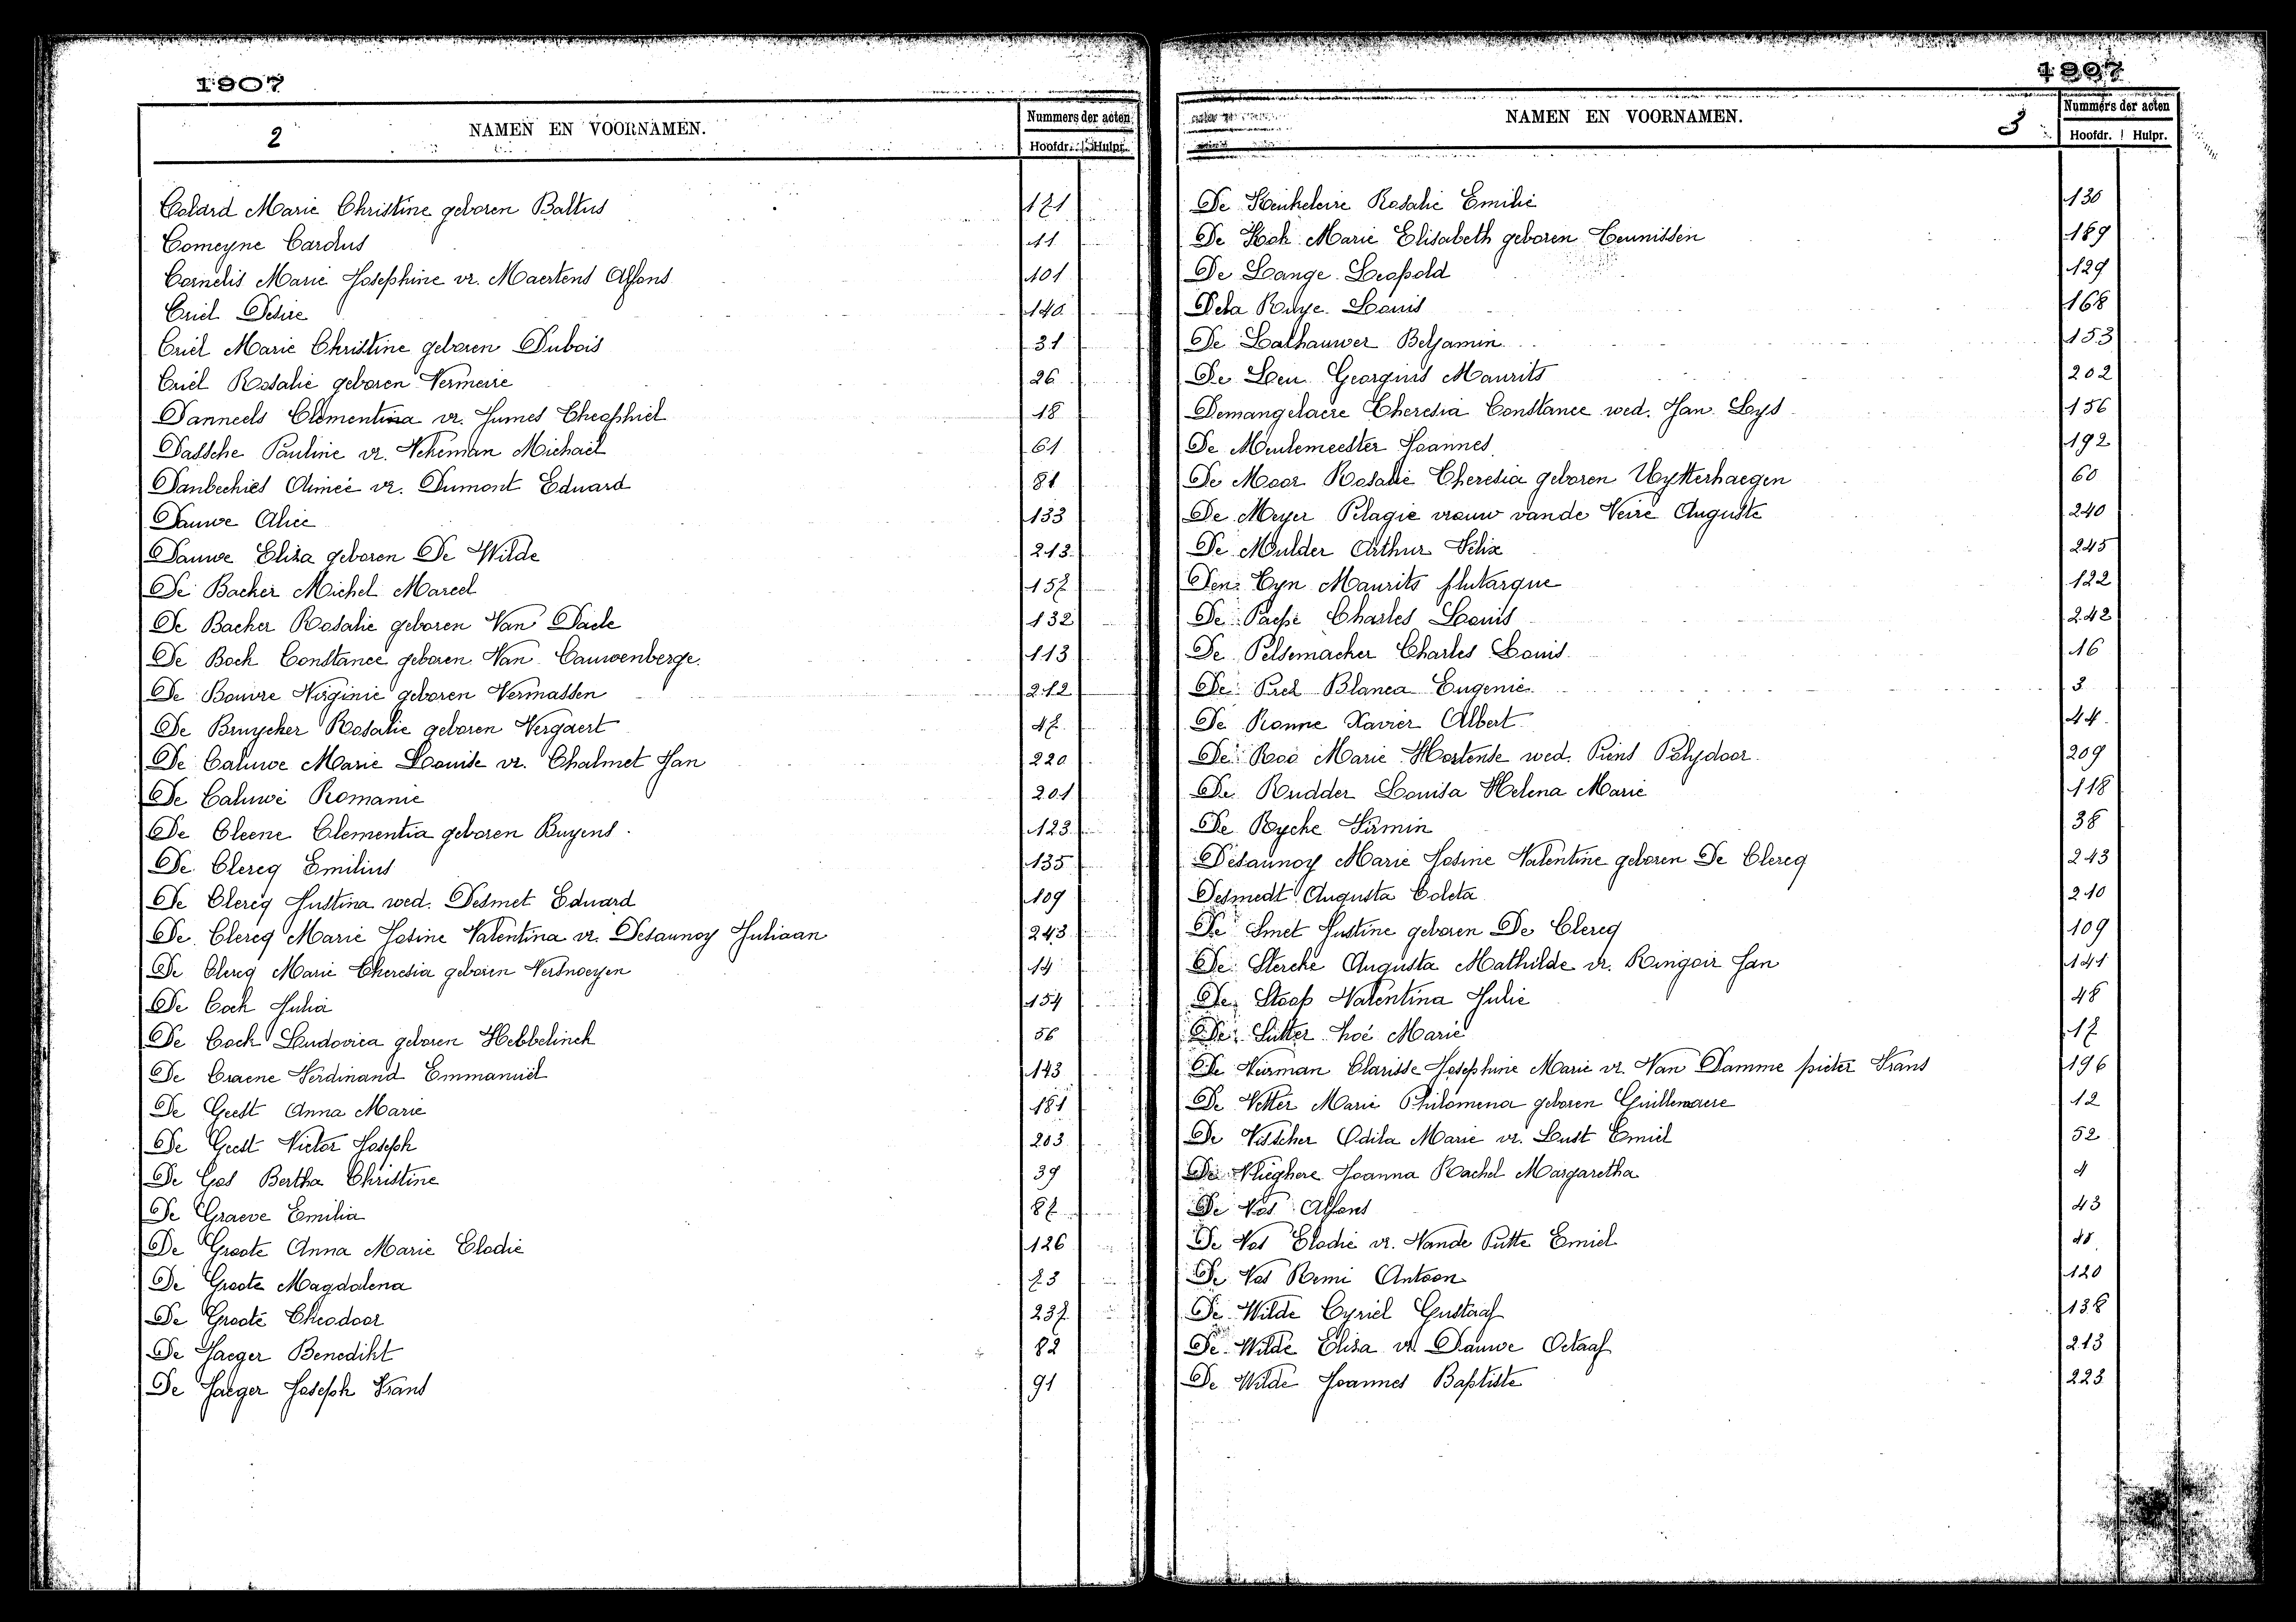 1907
2
NAMEN EN VOORNAMEN.
Nummers der acten
Hoofdr. Hulpr.
Colard Marie Christine geboren Baltus 171
Comeyne Carolus 11
Cornelis Marie Josephine vr. Maertens Alfons 101
Criel Desire 140
Criel Marie Christine geboren Dubois 31
Criel Rosalie geboren Vermeire 26
Danneels Clementina vr. Jumes Theophiel 18
Dassche Pauline vr. Vekeman Michaël 61
Danbechies Aimée vr. Dumont Eduard 81
Dauwe Alice 133
Dauwe Eliza geboren De Wilde 213
De Backer Michel Marcel 157
De Backer Rosalie geboren Van Daele 132
De Bock Constance geboren Van Cauwenberge. 113
De Bouvre Virginie geboren Vermassen 212
De Bruycker Rosalie geboren Vergaert 47
De Caluwe Marie Louise vr. Chalmet Jan 220
De Caluwé Romanie 201
De Cleene Clementia geboren Buyens 123
De Clercq Emilius 135
De Clercq Justina wed. Desmet Eduard 109
De Clercq Marie Josine Valentina vr. Desaunoy Juliaan 243
De Clercq Marie Theresia geboren Versnoeyen 14
De Cock Julia 154
De Cock Ludovica geboren Hebbelinck 56
De Craene Ferdinand Emmanuël 143
De Geest Anna Marie 181
De Geest Victor Joseph 203
De Gos Bertha Christine 39
De Graeve Emilia 87
De Groote Anna Marie Elodie 126
De Groote Magdalena 73
De Groote Theodoor 237
De Jaeger Benedikt 82
De Jaeger Joseph Frans 91
1907
NAMEN EN VOORNAMEN.
3
Nummers der acten
Hoofdr. Hulpr.
De Keukeleire Rosalie Emilie 130
De Kock Marie Elisabeth geboren Teunissen 189
De Lange Leopold 129
Dela Ruye Louis 168
De Lathauwer Benjamin 153
De Leu Georgius Maurits 202
Demangelaere Theresia Constance wed. Jan Leys 156
De Meulemeester Joannes 192
De Moor Rosalie Theresia geboren Uytterhaegen 60
De Meyer Pelagie vrouw vande Veire Auguste 240
De Mulder Arthur Felix 245
Den Tyn Maurits plutarque 122
De Paepe Charles Louis 242
De Pelsemacker Charles Louis 16
De Prez Blanca Eugenie 3
De Ronne Xavier Albert 44
De Roo Marie Hortense wed. Piens Polydoor 209
De Rudder Louisa Helena Marie 118
De Rycke Firmin 38
Désaunoy Marie Josine Valentine geboren De Clercq 243
Desmedt Augusta Coleta 210
De Smet Justine geboren De Clercq 109
De Stercke Augusta Mathilde vr. Ringoir Jan 141
De Stoop Valentina Julie 48
De Sutter Zoé Marie 17
De Veirman Clarisse Josephine Marie vr. Van Damme pieter Frans 196
De Vetter Marie Philomena geboren Guillemaere 12
De Visscher Odila Marie vr. Lust Emiel 52
De Vlieghere Joanna Rachel Margaretha 4
De Vos Alfons 43
De Vos Elodie vr. Vande Putte Emiel
De Vos Remi Antoon 120
De Wilde Cyriel Gustaaf 138
De Wilde Eliza vr. Dauwe Octaaf 213
De Wilde Joannes Baptiste 223